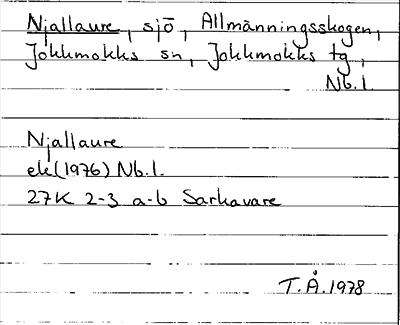 Njallaure, sjö, Allmänningsskogen,
Jokkmokks sn, Jokkmokks tg,
Nb.l.
Njallaure
ek(1976) Nb.l.
27K 2-3 a-b Sarkavare
T.Å.1978